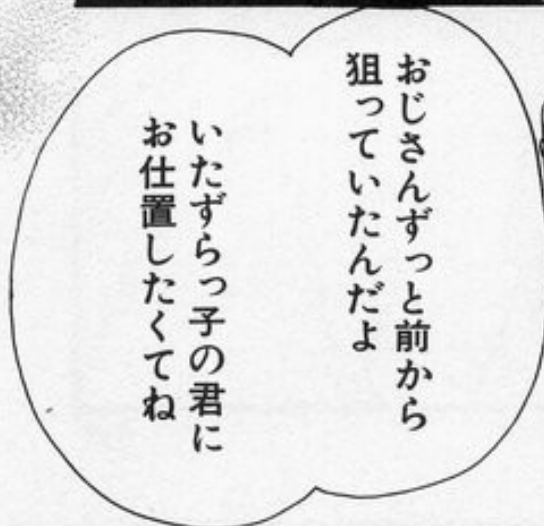 おじさんずっと前から
狙っていたんだよ
いたずらっ子の君に
お仕置したくてね